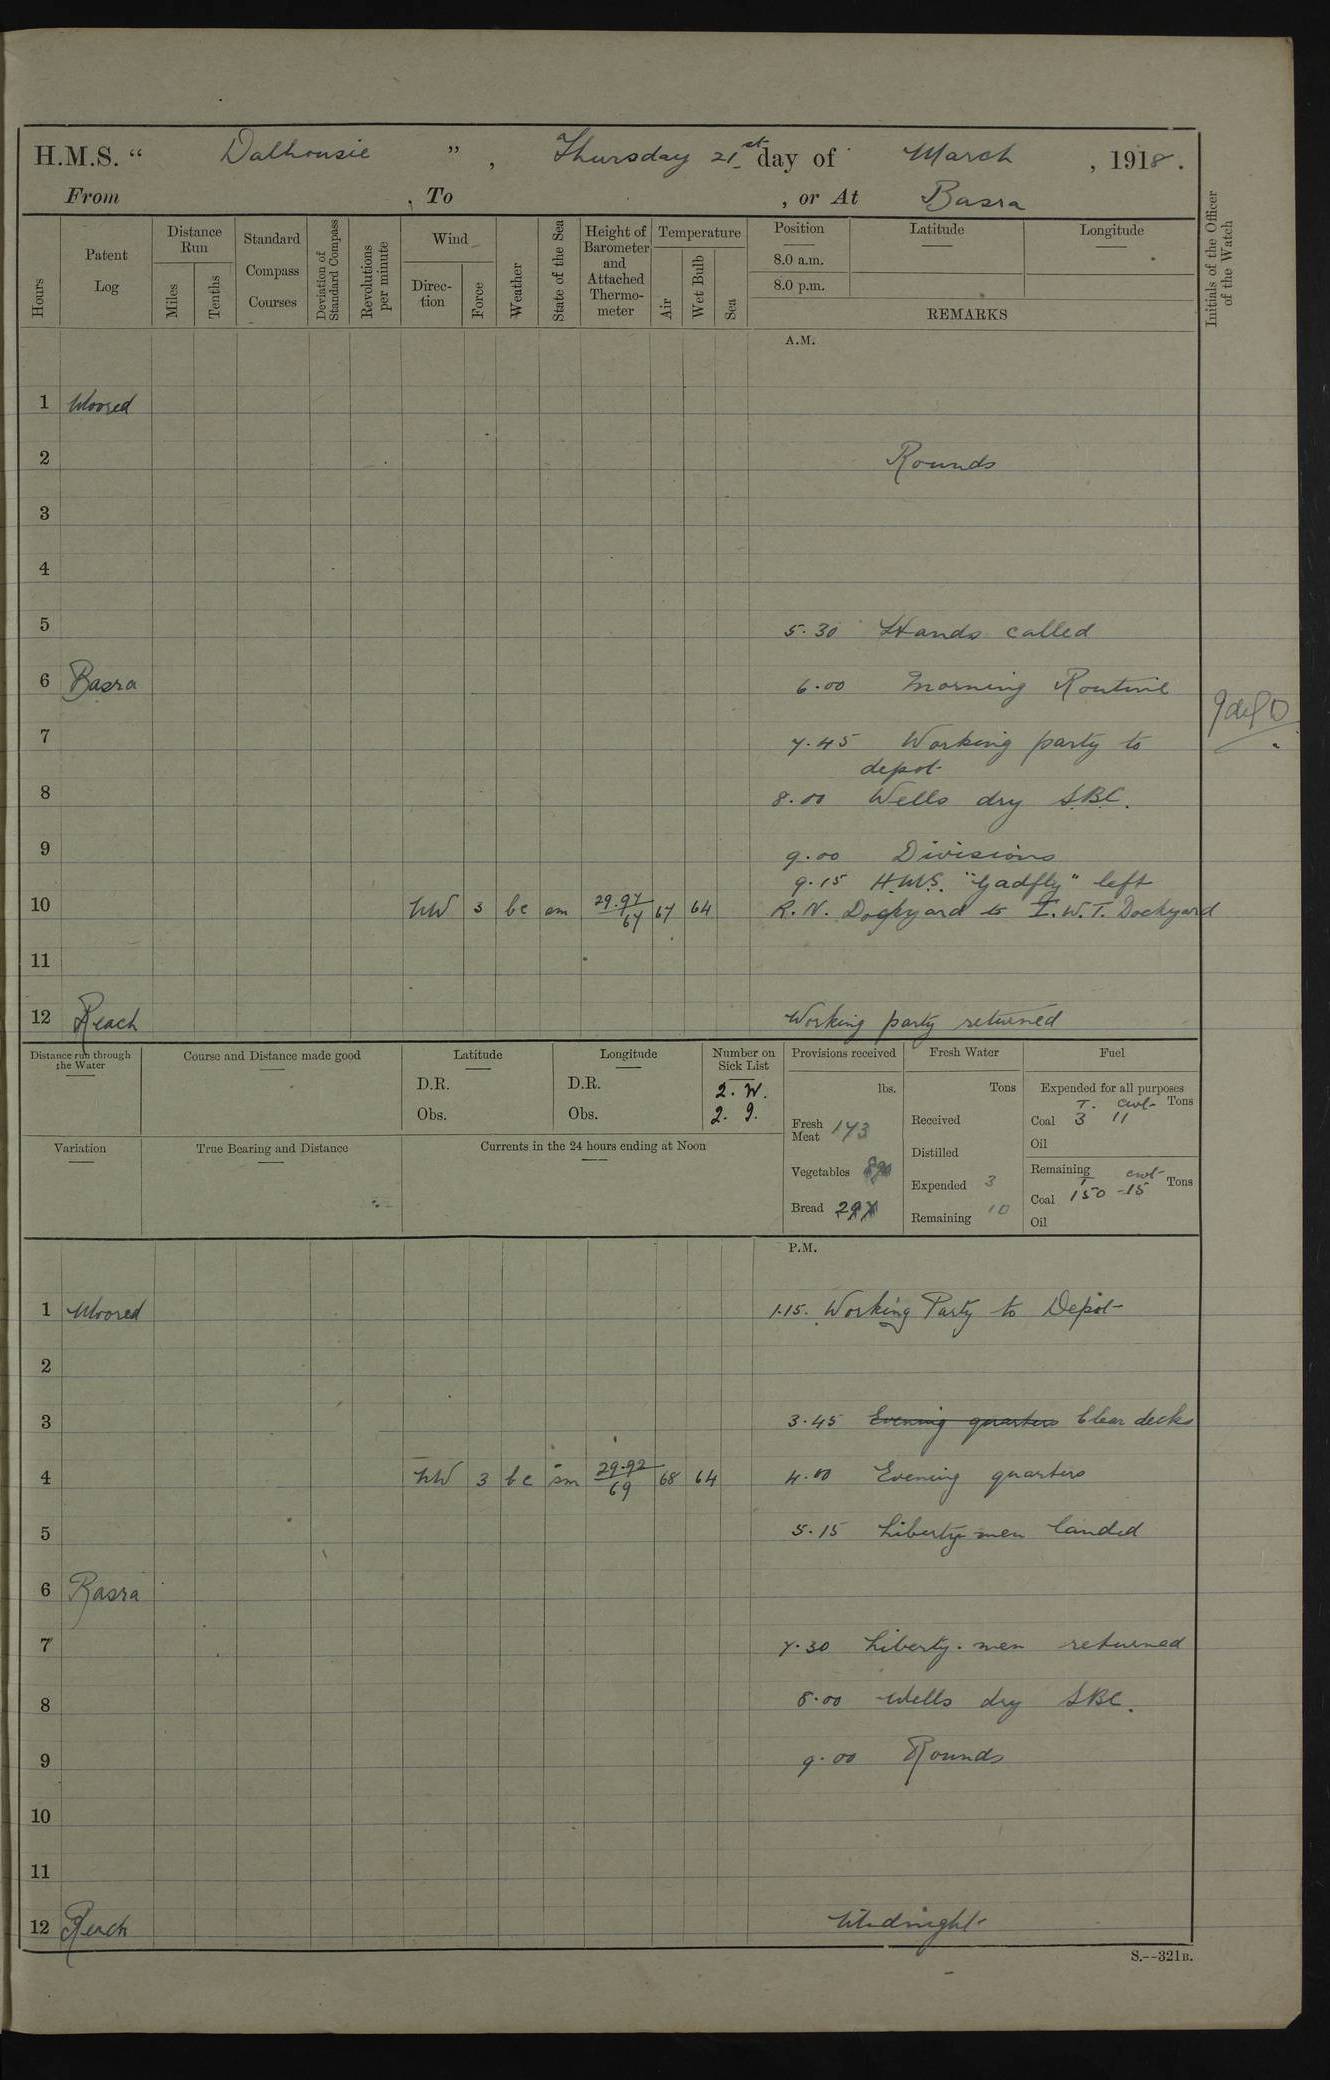 H.M.S. “ Dalhousie ” , Thursday 21st day of March , 1918 .
From , To , or At Basra
Hours
Patent Log
Distance Run
Miles
Tenths
Standard Compass Courses
Deviation of Standard Compass
Revolutions per minute
Wind
Direc-tion
Force
Weather
State of the Sea
Height of Barometer and Attached Thermo-meter
Temperature
Air
Wet Bulb
Sea
Position
8.0 a.m.
8.0 p.m.
Latitude
Longitude
REMARKS
Initials of the Officer of the Watch
A.M.
1 Moored
2 Rounds
3
4
5 5.30 Hands called
6 Basra 6.00 Morning Routine
7 7.45 Working party to
depot
8 8.00 Wells dry SBC.
9 9.00 Divisions
9.15 H.M.S. "Gadfly" left
10 NW 3 bc sm 29.97/67 67 64 R.N. Dockyard to I.W.T. Dockyard
11
12 Reach Working party returned
Distance run through the Water
Course and Distance made good
Latitude
D.R.
Obs.
Longitude
D.R.
Obs.
Number on Sick List
2. W.
2. I.
Provisions received
lbs.
Fresh Meat 173
Vegetables
Bread
Fresh Water
Tons
Received
Distilled
Expended 3
Remaining 10
Fuel
Expended for all purposes
T. cwt Tons
Coal 3 11
Oil
Remaining
T cwt Tons
Coal 150 - 15
Oil
Variation
True Bearing and Distance
Currents in the 24 hours ending at Noon
P.M.
1 Moored 1.15. Working Party to Depot
2
3 3.45 Evening quarters Clear decks
4 NW 3 bc sm 29.92/69 68 64 4.00 Evening quarters
5 5.15 Liberty-men landed
6 Basra
7 7.30 Liberty-men returned
8 8.00 Wells dry SBC.
9 9.00 Rounds
10
11
12 Reach Midnight
S.--321B.